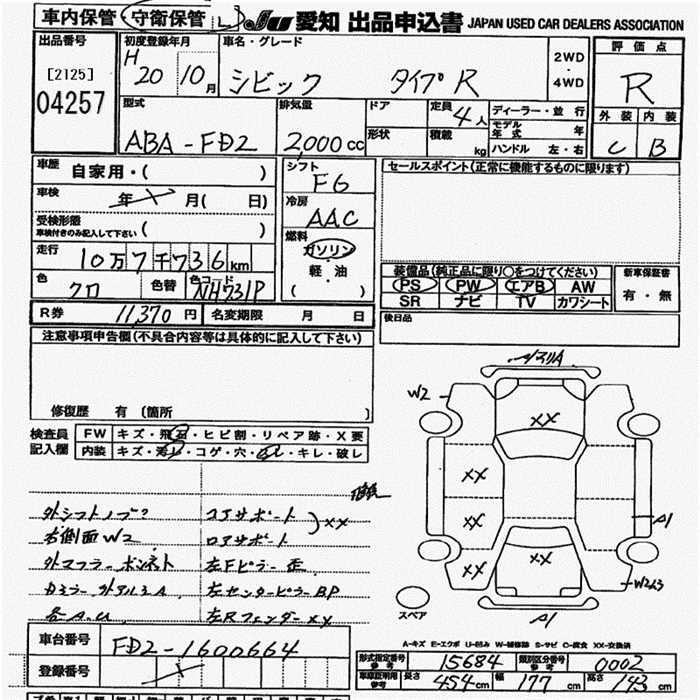 車内保管 守衛保管 L JU 愛知 出品申込書 JAPAN USED CAR DEALERS ASSOCIATION
出品番号 初度登録年月 車名・グレード 2WD ・ 4WD 評価点
[2125] H 20 10月 シビック タイプR R
04257
型式 排気量 ドア 定員 4人 ディーラー・並行 外装 内装
ABA-FD2 2000cc 形状 積載 kg モデル年式 年 C B
ハンドル 左・右
車歴 自家用・( ) シフト F6 セールスポイント(正常に機能するものに限ります)
車検 年 月( 日) 冷房 AAC
受検形態 車検付きのみ記入して下さい ( ) 燃料 ガソリン
走行 10万7千736km 軽・油 装備品(純正品に限り○をつけてください) 新車保証書
色 クロ 色替 色コード NH731P ( ) PS PW エアB AW 有・無
SR ナビ TV カワシート
R券 11,370円 名変期限 月 日 後日品
注意事項申告欄(不具合内容等は具体的に記入して下さい)
修復歴 有 〔箇所 〕
検査員記入欄 FW キズ・飛石・ヒビ割・リペア跡・X要
内装 キズ・汚レ・コゲ・穴・スレ・キレ・破レ
W2 XX
XX
XX A1
XX XX W2
A1
スペア
修後
外シフトノブ? コアサポート XX
右側面W2 ロアサポート
外マフラー ボンネット 左Fピラー 歪
左センターピラーBP
各A.U 左Rフェンダー XX
A-キズ E-エクボ U-凹み W-補修跡 S-サビ C-腐食 XX-交換済
車台番号 FD2-1600664
登録番号
形式指定番号 参考 15684 類別区分番号 参考 0002
車庫証明用 参考 長さ 454cm 幅 177cm 高さ 143cm